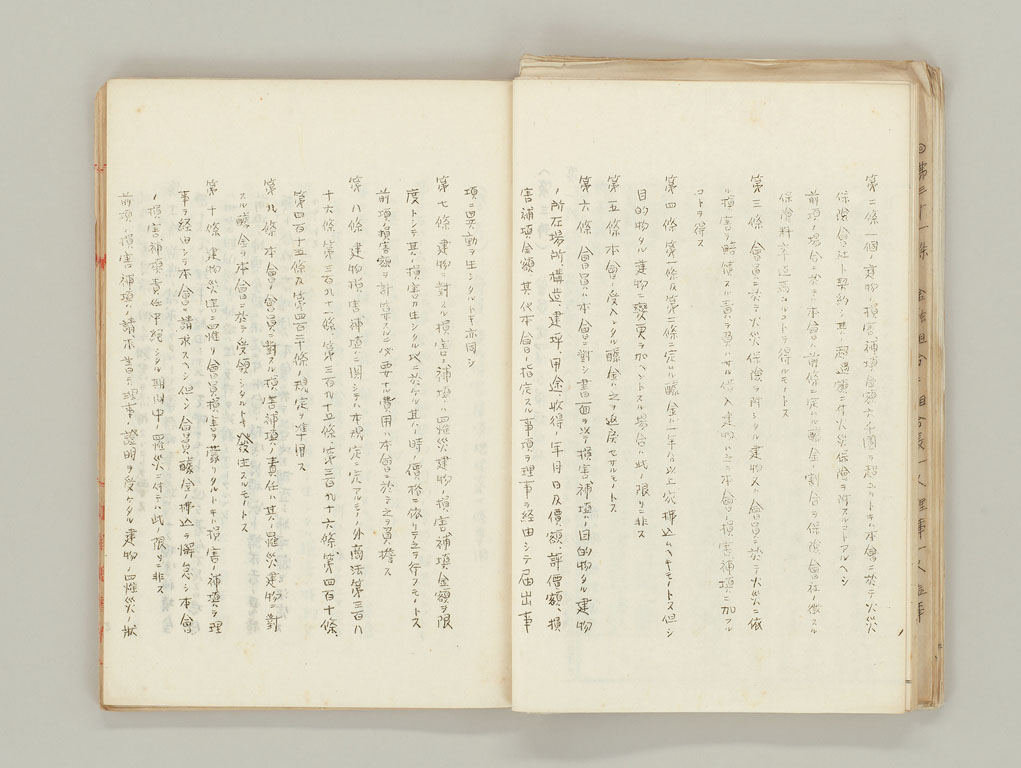 第二條一個ノ建物ノ損害補填金額六千圓ヲ超ユルトキハ本會ニ於テ火災
保險會社ト契約シ其ノ超過額ニ付火災保險ヲ附スルコトアルヘシ
前項ノ場合ニ於テ本會ハ前條ニ定ムル醵金ノ割合ヲ保險會社ノ徴スル
保險料率迄
コトヲ得ルモノトス
第三條 會員ニ於テ火災保險ヲ附シタル建物又ハ會員ニ於テ火災ニ依
ル損害ヲ賠償スル責ヲ負ハサル借入建物ハ之ヲ本會ノ損害補填ニ加フル
コトヲ得ス
第四條 第一條及第二條ニ定ムル醵金ハ一年分以上宛拂込ムヘキモノトス但シ
目的物タル建物ニ變更ヲ加ヘントスル場合ハ此ノ限リニ非ス
第五條 本會ノ受入レタル醵金ハ之ヲ返戻セサルモノトス
第六條 會員ハ本會ニ對シ書面ヲ以テ損害補填ノ目的物タル建物
ノ所在場所、構造、建坪、用途、收得ノ年月日及價額、評價額、損
害補填金額其他本會ノ指定スル事項ヲ理事ヲ経由シテ届出事
項ニ異動ヲ生シタルトキ亦同シ
第七條 建物ニ對スル損害ノ補填ハ罹災建物ノ損害補填金額ヲ限
度トシテ其ノ損害カ生シタル地ニ於ケル其ノ時ノ價格ニ依リテ之ヲ行フモノトス
前項ノ損害額ヲ計算スルニ必要ナル費用ハ本會ニ於テ之ヲ負擔ス
第八條 建物損害補填ニ関シテハ本規定ニ定アルモノノ外商法第三百八
十六條、第三百九十一條、第三百九十五條、第三百九十六條、第四百十條、
第四百十五條及第四百二十條ノ規定ヲ準用ス
第九條 本會ノ會員ニ對スル損害補填ノ責任ハ其ノ罹災建物ニ對
スル醵金ヲ本會ニ於テ受領シタルトキ發生スルモノトス
第十條 建物災害ニ罹リ會員損害ヲ蒙リタルトキハ損害ノ補填ヲ理
事ヲ経由シテ本會ニ請求スヘシ但シ會員醵金ノ拂込ヲ懈怠シ本會
ノ損害補填責任中絶シタル期間中ノ罹災ニ付テハ此ノ限リニ非ス
前項ノ損害補填ノ請求書ニハ理事ノ證明ヲ受ケタル建物ノ罹災ノ状